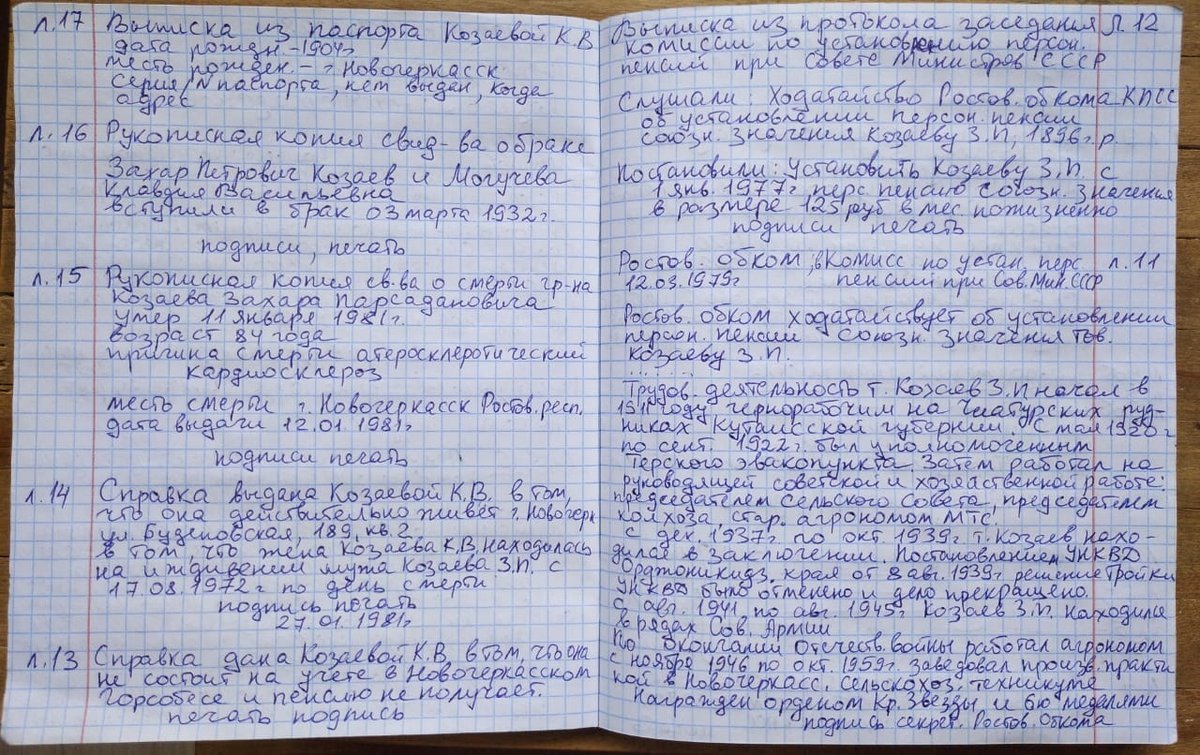 л.17 Выписка из паспорта Козаевой К.В
дата рожден. - 1904г
месть рожден. - г Новочеркасск
серия, N паспорта, кем выдан, когда
адрес
л.16 Рукописная копия свид-ва о браке
Захар Петрович Козаев и Могучева
Клавдия Васильевна
вступили в брак 03 марта 1932г.
подписи, печать
л.15 Рукописная копия св-ва о смерти гр-на
Козаева Захара Парсадановича
умер 11 января 1981г.
возраст 84 года
причина смерти атеросклеротический
кардиосклероз
месть смерти г. Новочеркасск Ростов. респ.
дата выдачи 12.01.1981г
подписи печать
л.14 Справка выдана Козаевой К.В. в том,
что она действительно живет г. Новочерк
ул. Буденовская, 189, кв.2
в том, что жена Козаева К.В. находилась
на иждивении мужа Козаева З.П. с
17.08.1972г по день смерти
подпись печать
27.01.1981г
л.13 Справка дана Козаевой К.В. в том, что она
не состоит на учете в Новочеркасском
горсобесе и пенсию не получает.
печать подпись
Выписка из протокола заседания л.12
комиссии по установлению персон.
пенсий при Совете Министров СССР
Слушали: Ходатайство Ростов. обкома КПСС
об установлении персон. пенсии
союзн. значения Козаеву З.П., 1896г.р.
Постановили: Установить Козаеву З.П. с
1 янв. 1977г. перс пенсию союзн. значения
в размере 125 руб в мес. пожизненно
подписи печать
Ростов. обком, в Комисс по устан. перс л.11
12.03.1979г пенсий при Сов. Мин. СССР
Ростов. обком ходатайствует об установлении
персон. пенсии союзн. значения тов.
Козаеву З.П.
.......
Трудов. деятельность т. Козаев З.П начал в
году чернорабочим на Чиатурских руд-
никах Кутаисской губернии. С мая 1920г
по сент. 1922г. был уполномоченным
Терского эвакопункта. Затем работал на
руководящей советской и хозяйственной работе:
председателем Сельского Совета, председателем
колхоза, стар. агрономом МТС.
С дек. 1937г. по окт. 1939г. т. Козаев нахо-
дился в заключении. Постановлением УНКВД
Орджоникидз. края от 8 авг. 1939г. решение Тройки
УНКВД было отменено и дело прекращено.
С авг. 1941 по авг. 1945г Козаев З.П. находился
в рядах Сов. Армии
По окончании Отечеств. войны работал агрономом
с ноября 1946 по окт. 1959г. заведовал произв. практи
кой в Новочеркасс. Сельскохоз. техникуме
Награжден орденом Кр. Звезды и 6ю медалями
подпись секрет. Ростов. Обкома